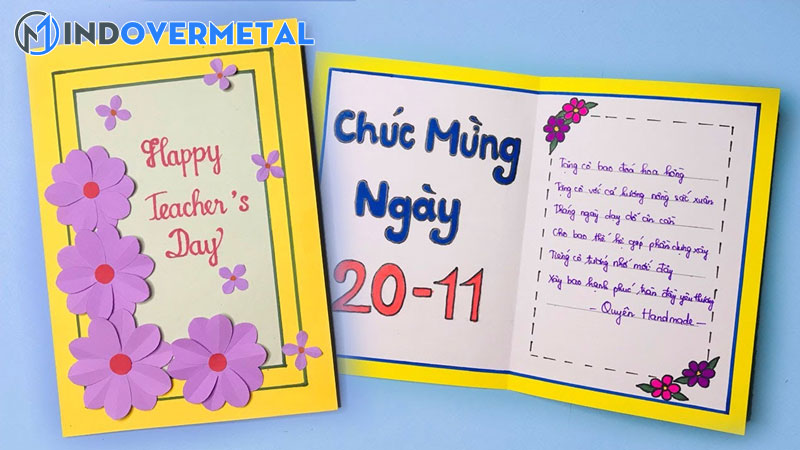 MINDOVERMETAL
Happy
Teacher's
Day
Chúc Mừng
Ngày
20-11
Tặng cô bao đoá hoa hồng
Tặng cô với cả hương nồng sắc xuân
Tháng ngày dạy dỗ ân cần
Cho bao thế hệ góp phần dựng xây
Tiếng cô tương nhớ mới đây
Xây bao hạnh phúc, tràn đầy yêu thương
- Quyên Handmade -